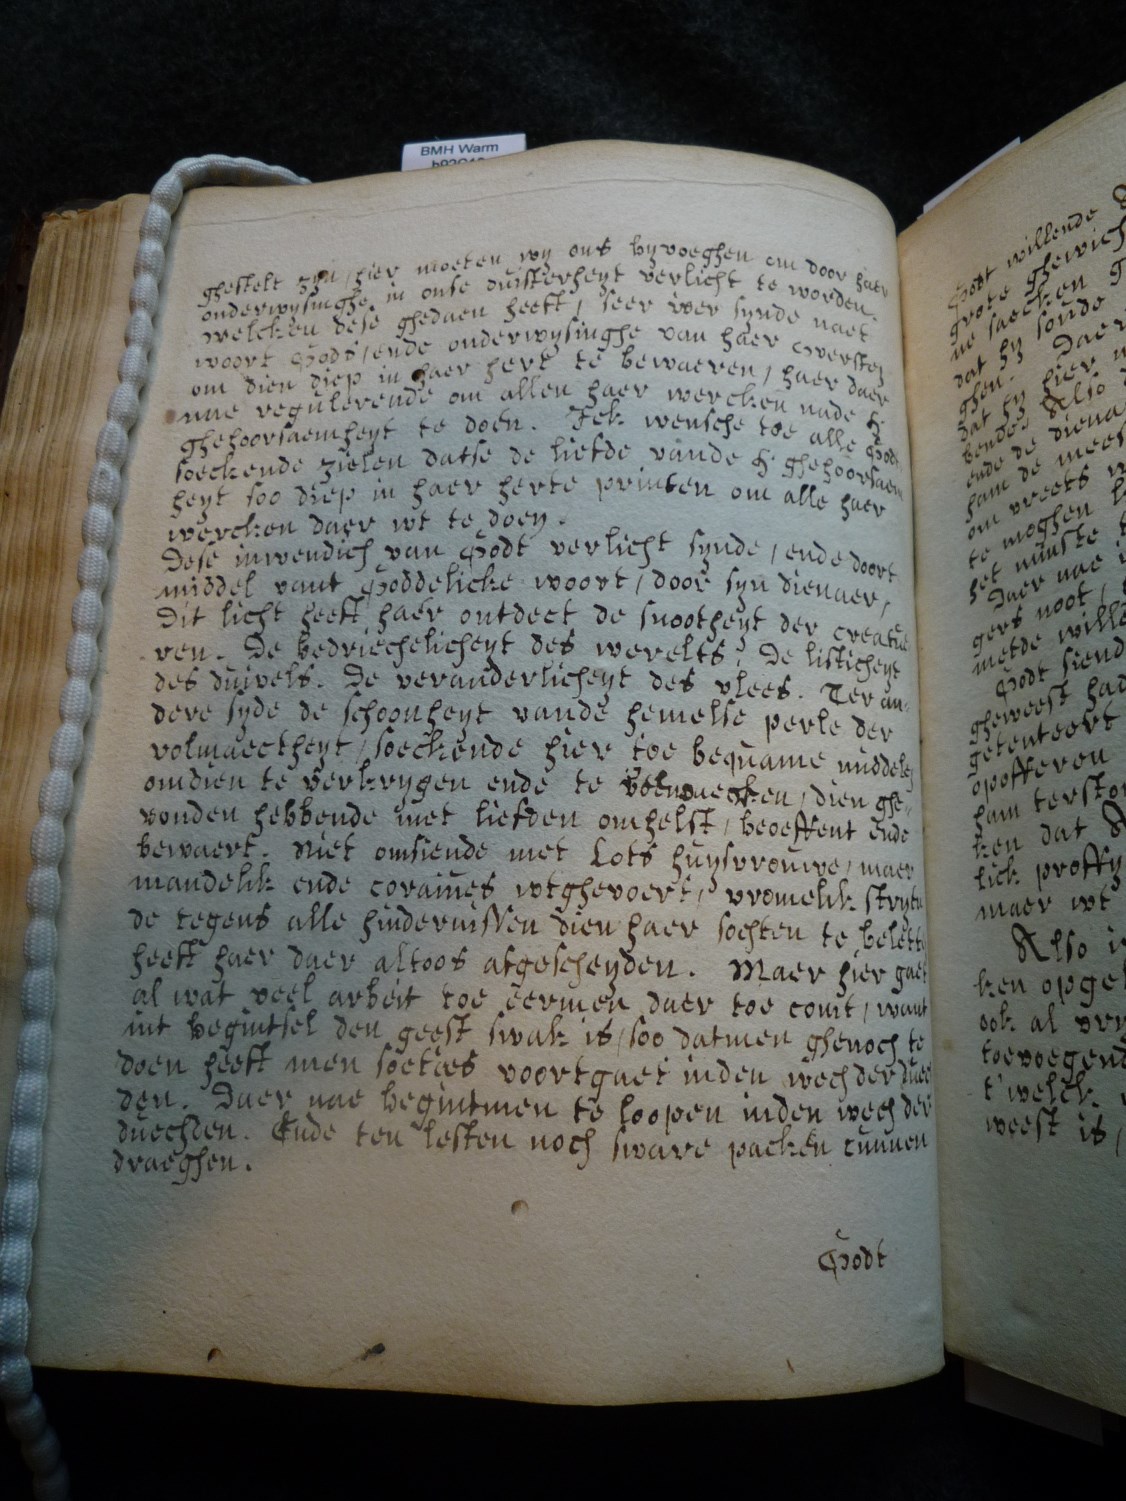 BMH Warm
ghestelt zijn, hier moeten wy ons byvoeghen om door haer
onderwysinghe in onse duisterheyt verlicht te worden.
welcken dese ghedaen heeft, seer wer synde naet
woort Godts, ende onderwysinghe van haer oversten
om dien diep in haer hert te bewaeren, haer daer
nae regulerende om allen haer wercken unde H.
ghehoorsaemheyt te doen. Ick wensche toe alle Godt
soeckende zielen datse de liefde vande H. ghehoorsaem
heyt soo diep in haer herte printen om alle haer
wercken daer wt te doen.
Dese inwendich van Godt verlicht synde, ende doort
middel vant Goddelicke woort, door syn dienaer,
Dit licht heeft haer ontdect de snootheyt der creatue
ren. De bedriechelicheyt des werelts, De listicheyt
des duivels. De veranderlicheyt des vlees. Ter an-
dere syde de schoonheyt vande hemelse perle der
volmaectheyt, soeckende hier toe bequame middelen
omdien te verkrygen ende te, dien ghe-
vonden hebbende met liefden omhelst, beoeffent ende
bewaert. Niet omsiende met Lots huysvrouwe, maer
mandelik ende coraiues wtghevoert, vromelik stryen
de tegens alle hindernissen dien haer sochten te belette
heeft haer daer altoos afgescheyden. Maer hier gaet
al wat veel arbeit toe eermen daer toe comt, want
int begintsel den geest swak is, soo datmen ghenoch te
doen heeft men soeties voortgaet inden wech der duec
den. Daer nae begintmen te loopen inden wech der
duechden. Ende ten lesten noch sware packen cunnen
draeghen.
Godt
Godt willende
grote ghewich
ne saecken
dat hy sonde
ghen. Daer
dat hy hier
bende, Also
ende de diena
ham de mees
om vreets
te moghen
het minste
Daer nae
gers noot,
metde wille
Godt siend
gheweest had
getenteert
opofferen
ham tersto
ken dat
lick proffy
maer wt
Also i
ken opge
ook al vry
toevoegend
t'welck
weest is,